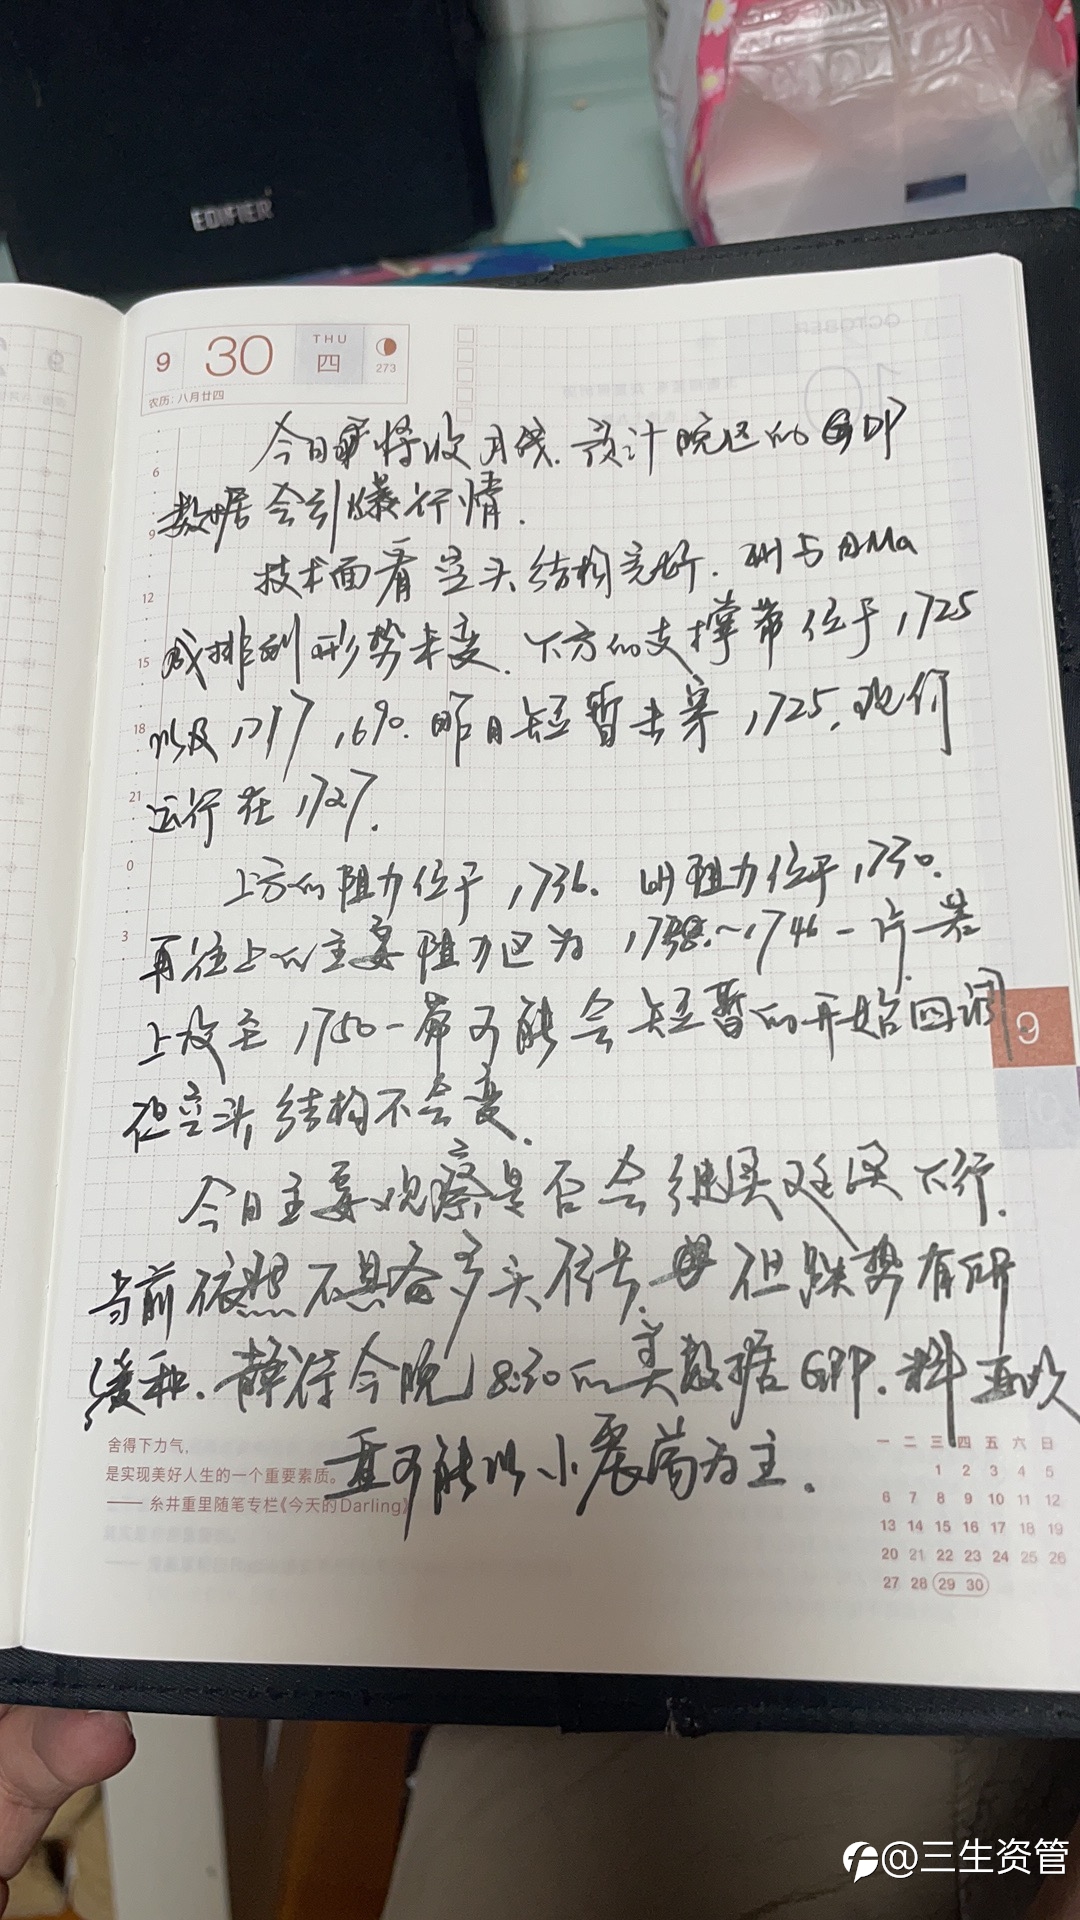 EDIFIER
9 30 THU 四 273
农历:八月廿四
今日将收月线.预计晚间的GDP
数据会引爆行情.
技术面看空头结构完好. 与日Ma
排列形势未变.下方的支撑带位于1725
以及1717 1690.昨日短暂击穿1725,现价
运行在1727.
上方的阻力位于1736. 阻力位于1730.
再往上的主要阻力区为1738~1746一片.若
上攻至1750一带可能会短暂的开始回调.
但空头结构不会变.
今日主要观察是否会继续延续下行.
当前依然不具备多头信号.但跌势有所
缓和.静待今晚8:30的美数据GDP.料再次
可能以小震荡为主.
6
9
12
15
18
21
0
3
9
舍得下力气,
是实现美好人生的一个重要素质。
—— 糸井重里随笔专栏《今天的Darling》
一 二 三 四 五 六 日
1 2 3 4 5
6 7 8 9 10 11 12
13 14 15 16 17 18 19
20 21 22 23 24 25 26
27 28 29 30
@三生资管